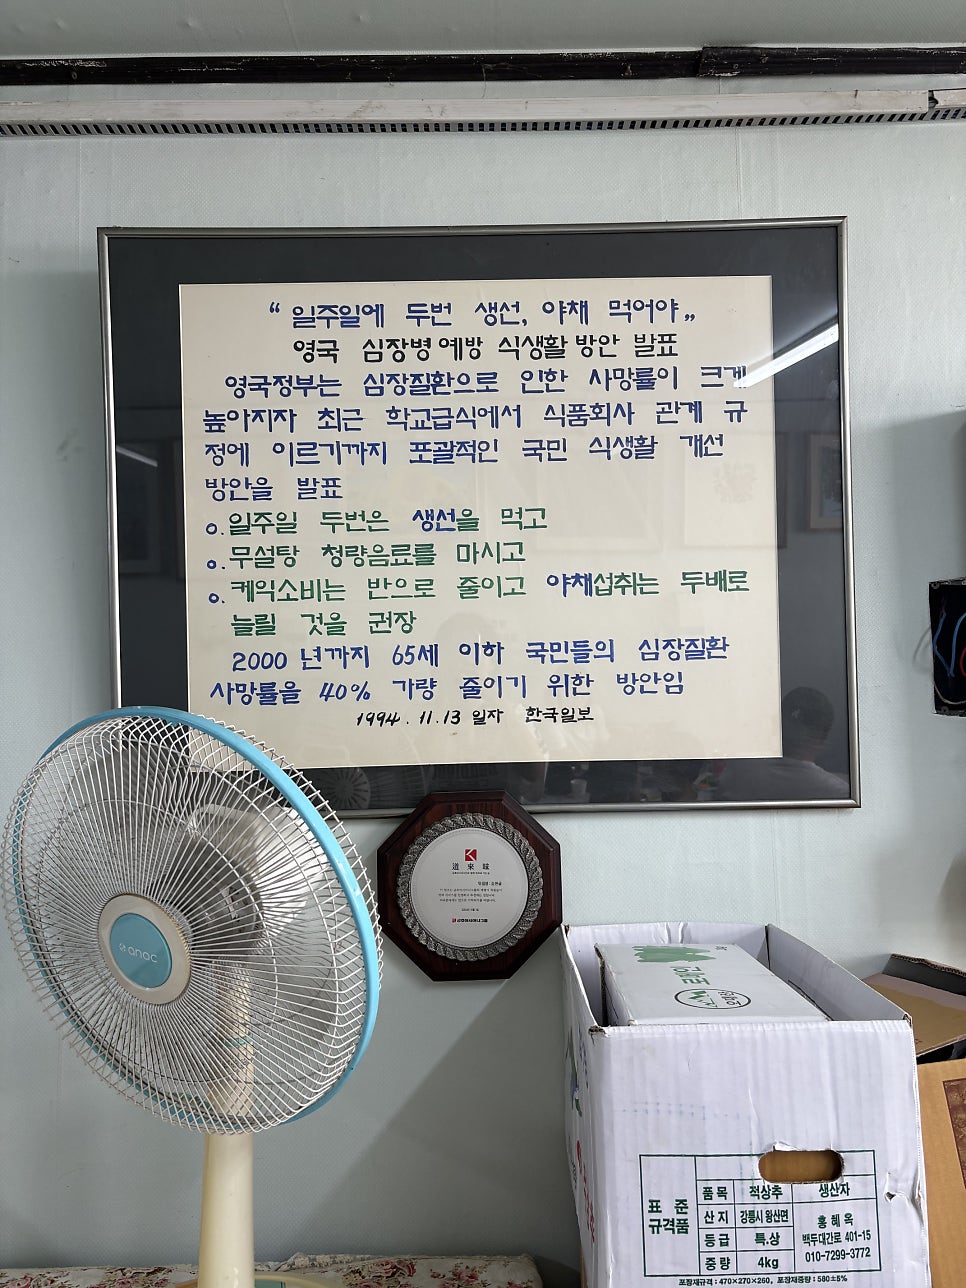 “ 일주일에 두번 생선, 야채 먹어야 „
영국 심장병 예방 식생활 방안 발표
영국정부는 심장질환으로 인한 사망률이 크게
높아지자 최근 학교급식에서 식품회사 관계 규
정에 이르기까지 포괄적인 국민 식생활 개선
방안을 발표
o. 일주일 두번은 생선을 먹고
o. 무설탕 청량음료를 마시고
o. 케익소비는 반으로 줄이고 야채섭취는 두배로
늘릴 것을 권장
2000 년까지 65세 이하 국민들의 심장질환
사망률을 40% 가량 줄이기 위한 방안임
1994. 11. 13 일자 한국일보
anoc
道 來 味
금호아시아나그룹
표준규격품
품목 적상추 생산자
산지 강릉시 왕산면
등급 특.상
중량 4kg
홍혜옥
백두대간로 401-15
010-7299-3772
포장재규격 : 470×270×260, 포장재중량 : 580±5%